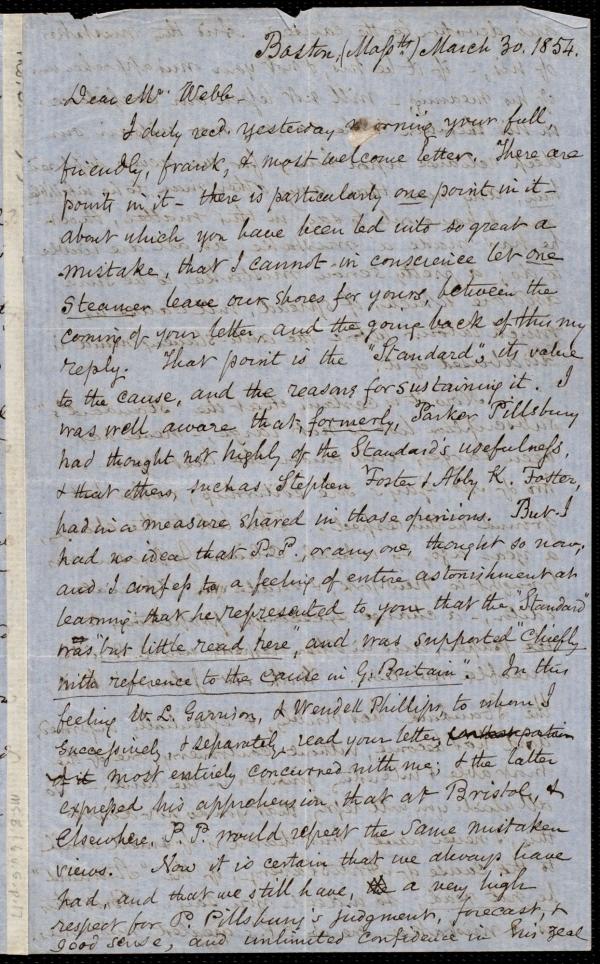 Boston, (Massts.) March 30. 1854.
Dear Mr. Webb.
I duly recd. yesterday morning your full
friendly, frank, & most welcome letter. There are
points in it – there is particularly one point in it –
about which you have been led into so great a
mistake, that I cannot in conscience let one
steamer leave our shores for yours, between the
coming of your letter, and the going back of this my
reply. That point is the "Standard", its value
to the cause, and the reasons for sustaining it. I
was well aware that, formerly, Parker Pillsbury
had thought not highly of the Standard's usefulness,
& that others, such as Stephen Foster & Abby K. Foster,
had in a measure shared in those opinions. But I
had no idea that P. P., or any one, thought so now,
and I confess to a feeling of entire astonishment at
learning that he represented to you that the "Standard"
was "but little read here", and was supported "chiefly
with reference to the cause in G. Britain". In this
feeling W. L. Garrison, & Wendell Phillips, to whom I
successively & separately read your letter,
of it most entirely concurred with me; & the latter
expressed his apprehension, that at Bristol, &
elsewhere, P. P. would repeat the same mistaken
views. Now it is certain that we always have
had, and that we still have, a very high
respect for P. Pillsbury's judgment, forecast, &
good sense, and unlimited confidence in his zeal